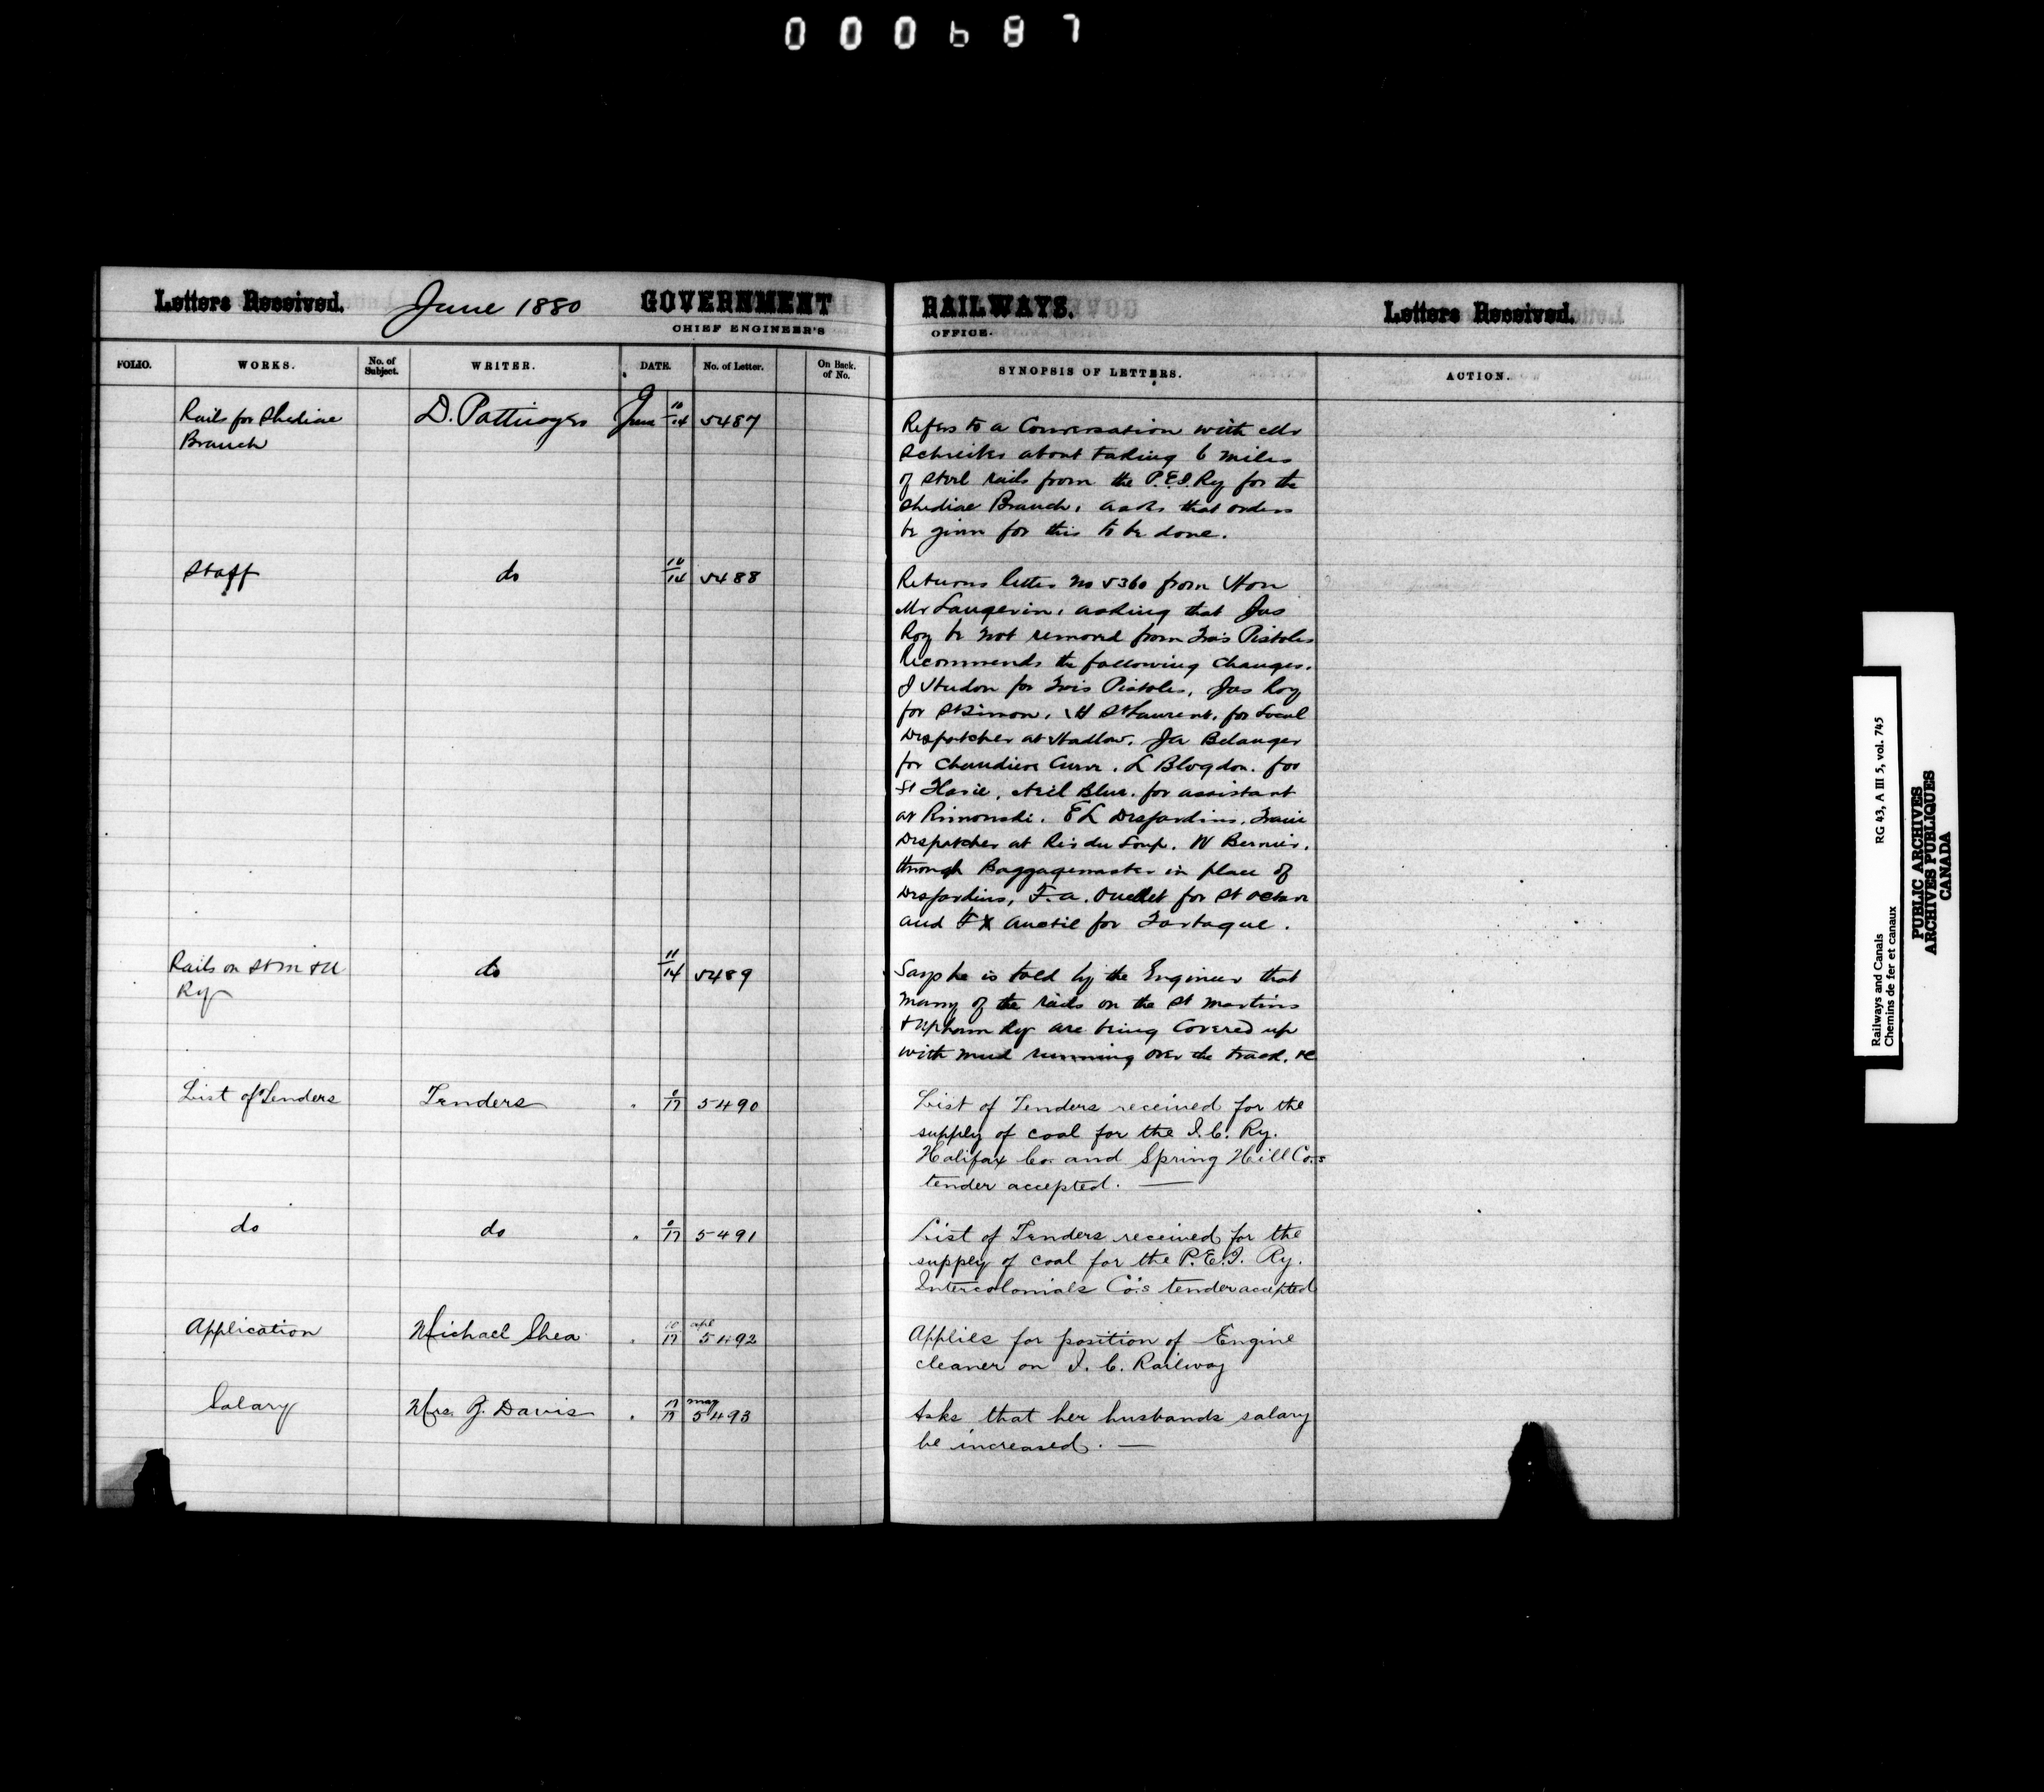 000687
Letters Received. June 1880 GOVERNMENT RAILWAYS. Letters Received.
CHIEF ENGINEER'S OFFICE.
FOLIO. WORKS. No. of Subject. WRITER. DATE. No. of Letter. On Back. of No. SYNOPSIS OF LETTERS. ACTION.
Rails for Shediac
Branch
D. Pottinger June 10/14 5487
Refers to a Conversation with Mr
Schreiber about taking 6 miles
of steel rails from the P.E.I. Ry for the
Shediac Branch, asks that orders
be given for this to be done.
Staff do 10/14 5488
Returns letter No 5360 from Hon
Mr Langevin, asking that Jas
Roy be not removed from Trois Pistoles
Recommends the following changes.
J Hudon for Trois Pistoles, Jas Roy
for St Simon, H St Laurent, for Local
Despatcher at Hadlow. JA Belanger
for Chaudiere Curve. L Blogdon. for
St Flavie, for assistant
at Rimouski. E L Desjardins, Train
Despatcher at Riv du Loup. N Bernier,
through Baggagemaster in place of
Desjardins, F. A. Ouellet for St Octave
and F X Anctil for Tartague.
Rails on St M & U
Ry
do 11/14 5489
Says he is told by the Engineer that
many of the rails on the St Martins
& Upham Ry are being Covered up
with mud running over the track, &c
List of Tenders Tenders " 0/17 5490
List of Tenders received for the
supply of coal for the I.C. Ry.
Halifax Co. and Spring Hill Co.s
tender accepted. —
do do " 0/17 5491
List of Tenders received for the
supply of coal for the P.E.I. Ry.
Intercolonials Co.'s tender accepted
Application Michael Shea " 10/17 apl 5492
Applies for position of Engine
cleaner on I. C. Railway
Salary Mrs. G. Davis " 17/17 may 5493
Asks that her husbands salary
be increased. —
Railways and Canals RG 43, A III 5, vol. 745
Chemins de fer et canaux
PUBLIC ARCHIVES
ARCHIVES PUBLIQUES
CANADA